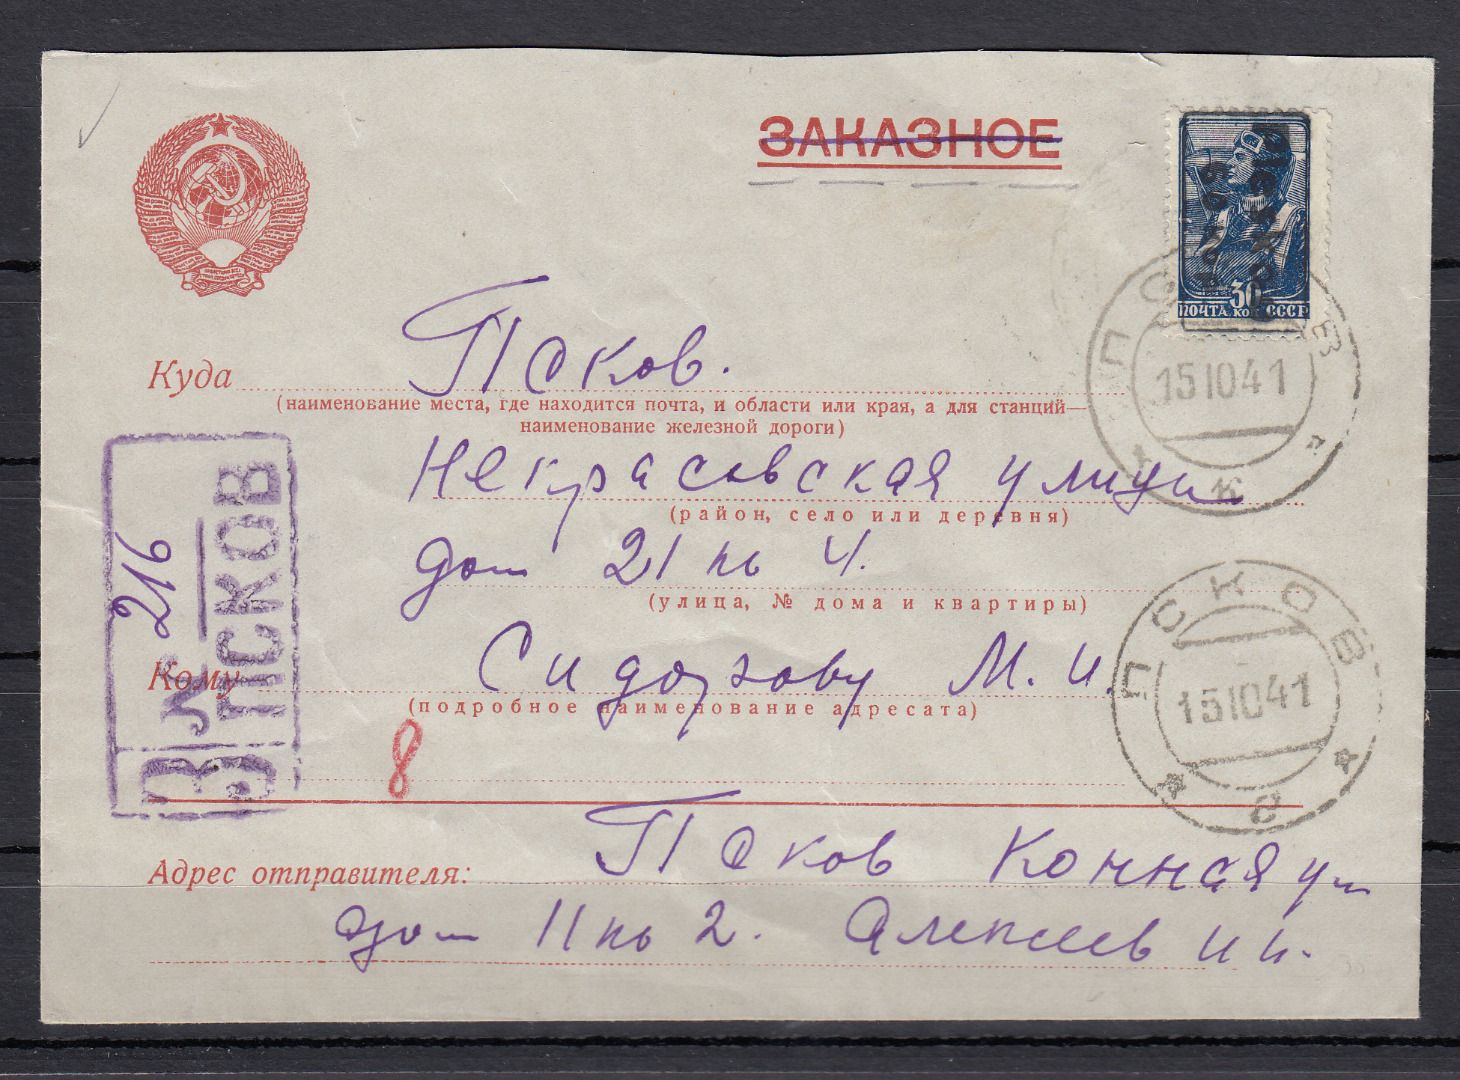 ЗАКАЗНОЕ
30
ПОЧТА коп СССР
Куда Псков.
(наименование места, где находится почта, и области или края, а для станций—
наименование железной дороги)
ПСКОВ
15 10 41
Некрасовская улица
(район, село или деревня)
дом 21 кв 4.
(улица, № дома и квартиры)
Кому Сидорову М. И.
(подробное наименование адресата)
З ПСКОВ
№ 216
ПСКОВ
15 10 41
8
Адрес отправителя: Псков Конная ул
дом 11 кв 2. Алексеев И И.